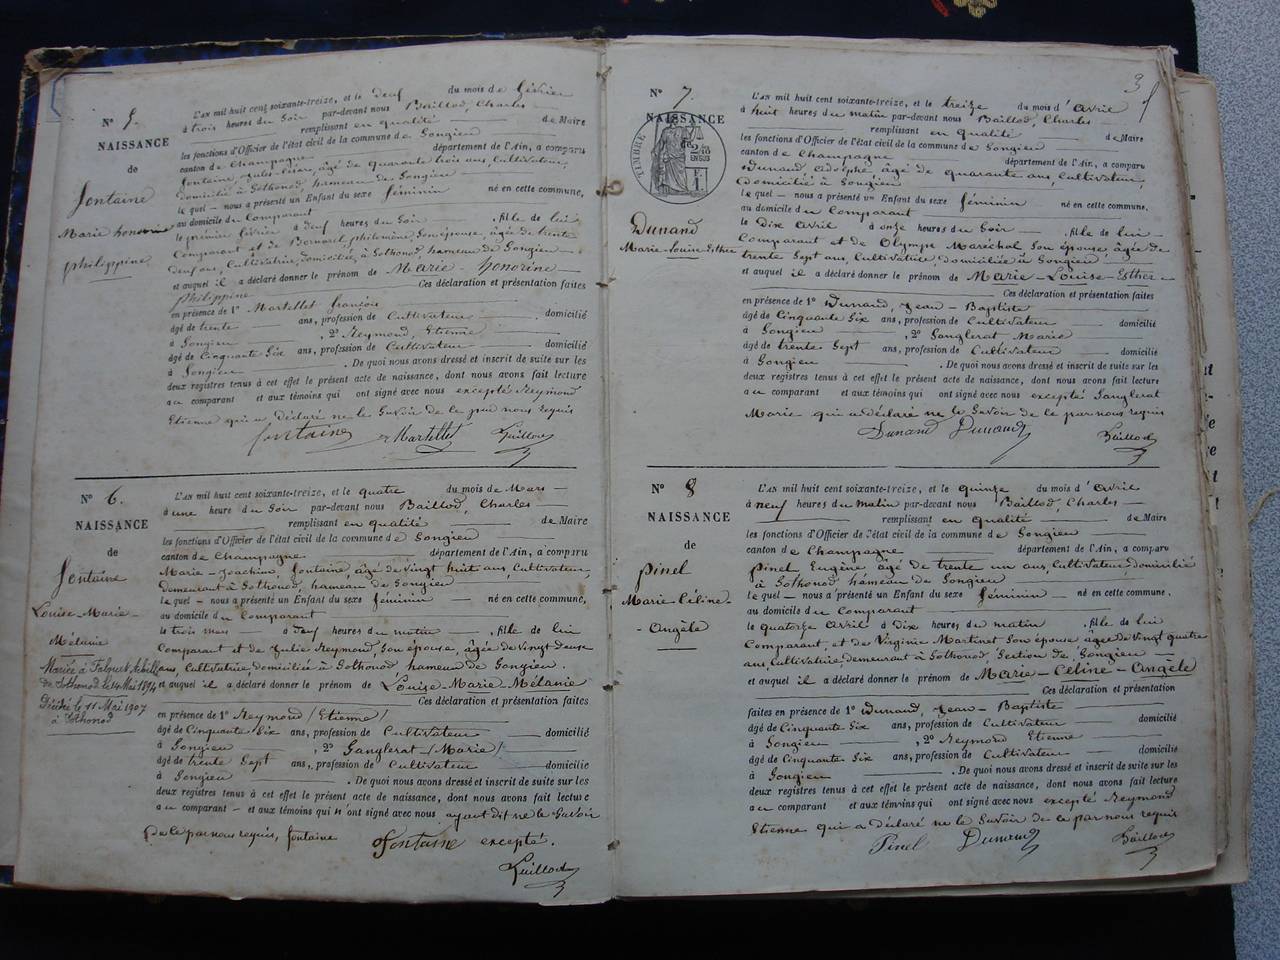 N° 5.
NAISSANCE
de
Fontaine
Marie honorine
philippine
L'AN mil huit cent soixante-treize, et le deuf du mois de février
à trois heures du Soir par-devant nous Baillod, Charles
remplissant en qualité de Maire
les fonctions d'Officier de l'état civil de la commune de Songieu
canton de Champagne département de l'Ain, a comparu
Fontaine, Jules-César, âgé de quarante trois ans, Cultivateur,
domicilié à Sothonod hameau de Songieu
le quel — nous a présenté un Enfant du sexe féminin né en cette commune,
au domicile du Comparant
le prémier février à deuf heures du Soir , fille de lui
Comparant et de Bornarel, philomène Son épouse, âgée de trente
deuf ans, Cultivatrice, domiciliée à Sothonod, hameau de Songieu
et auquel il a déclaré donner le prénom de Marie - honorine
philippine Ces déclaration et présentation faites
en présence de 1° Martellet françois
âgé de trente ans, profession de Cultivateur domicilié
à Songieu , 2° Reymond, Etienne
âgé de Cinquante Six ans, profession de Cultivateur domicilié
à Songieu . De quoi nous avons dressé et inscrit de suite sur les
deux registres tenus à cet effet le présent acte de naissance, dont nous avons fait lecture
au comparant et aux témoins qui ont signé avec nous excepté Reymond
Etienne qui a déclaré ne le Savoir de ce par nous requis
fontaine Martellet Baillod
N° 6.
NAISSANCE
de
Fontaine
Louise-Marie-
Mélanie
Mariée à Falquet Achille
de Sothonod le 14 Mai 1894
Décédée le 11 Mai 1907
à Sothonod
L'AN mil huit cent soixante-treize, et le quatre du mois de Mars
à une heure du Soir par-devant nous Baillod, Charles
remplissant en qualité de Maire
les fonctions d'Officier de l'état civil de la commune de Songieu
canton de Champagne département de l'Ain, a comparu
Marie-Joachim fontaine, âgé de vingt huit ans, Cultivateur,
demeurant à Sothonod, hameau de Songieu
le quel — nous a présenté un Enfant du sexe féminin — né en cette commune,
au domicile du Comparant
le trois mars — à deuf heures du matin — , fille de lui
Comparant et de Julie Reymond, Son épouse, âgée de vingt deux
ans, Cultivatrice, domiciliée à Sothonod hameau de Songieu.
et auquel il a déclaré donner le prénom de Louise-Marie-Mélanie
Ces déclaration et présentation faites
en présence de 1° Reymond (Etienne)
âgé de Cinquante Six ans, profession de Cultivateur domicilié
à Songieu , 2° Sanglerat (Marie)
âgé de trente Sept ans, profession de Cultivateur domicilié
à Songieu . De quoi nous avons dressé et inscrit de suite sur les
deux registres tenus à cet effet le présent acte de naissance, dont nous avons fait lecture
au comparant — et aux témoins qui n'ont signé avec nous ayant dit ne le Savoir
De ce par nous requis, fontaine fontaine excepté.
Baillod
3
N° 7.
NAISSANCE
TIMBRE
2/10 EN SUS
F. 1.
Dunand
Marie-Louise-Esther
L'AN mil huit cent soixante-treize, et le treize du mois d'avril
à huit heures du matin par-devant nous Baillod, Charles
remplissant en qualité de Maire
les fonctions d'Officier de l'état civil de la commune de Songieu
canton de Champagne département de l'Ain, a comparu
Dunand Adolphe âgé de quarante ans, Cultivateur,
Domicilié à Songieu
le quel — nous a présenté un Enfant du sexe féminin né en cette commune,
au domicile du Comparant
le Dix Avril à onze heures du Soir — , fille de lui
Comparant et de Olympe Maréchal Son épouse, âgée de
trente Sept ans, Cultivatrice, domiciliée à Songieu
et auquel il a déclaré donner le prénom de Marie-Louise-Esther
Ces déclaration et présentation faites
en présence de 1° Dunand, Jean-Baptiste
âgé de Cinquante Six ans, profession de Cultivateur domicilié
à Songieu , 2° Sanglerat Marie
âgé de trente Sept ans, profession de Cultivateur domicilié
à Songieu . De quoi nous avons dressé et inscrit de suite sur les
deux registres tenus à cet effet le présent acte de naissance, dont nous avons fait lecture
au comparant et aux témoins qui ont signé avec nous excepté Sanglerat
Marie qui a déclaré ne le Savoir de ce par nous requis
Dunand Dunand Baillod
N° 8
NAISSANCE
de
Pinel
Marie Céline-
- Angèle
L'AN mil huit cent soixante-treize, et le quinze du mois d'avril
à neuf heures du matin par-devant nous Baillod, Charles
remplissant en qualité de Maire
les fonctions d'Officier de l'état civil de la commune de Songieu
canton de Champagne département de l'Ain, a comparu
Pinel Eugène âgé de trente un ans, Cultivateur domicilié
à Sothonod hameau de Songieu
le quel — nous a présenté un Enfant du sexe féminin — né en cette commune,
au domicile du Comparant
le quatorze avril à Dix heures du matin , fille de lui
Comparant, et de Virginie Martinet Son épouse âgée de vingt quatre
ans, Cultivatrice, demeurant à Sothonod, Section de Songieu
et auquel il a déclaré donner le prénom de Marie-Céline-Angèle
Ces déclaration et présentation
faites en présence de 1° Dunand, Jean-Baptiste
âgé de Cinquante Six ans, profession de Cultivateur domicilié
à Songieu , 2° Reymond Etienne
âgé de Cinquante Six ans, profession de Cultivateur domicilié
à Songieu . De quoi nous avons dressé et inscrit de suite sur les
deux registres tenus à cet effet le présent acte de naissance, dont nous avons fait lecture
au comparant et aux témoins qui ont signé avec nous excepté Reymond
Etienne qui a déclaré ne le Savoir de ce par nous requis
Pinel Dunand Baillod